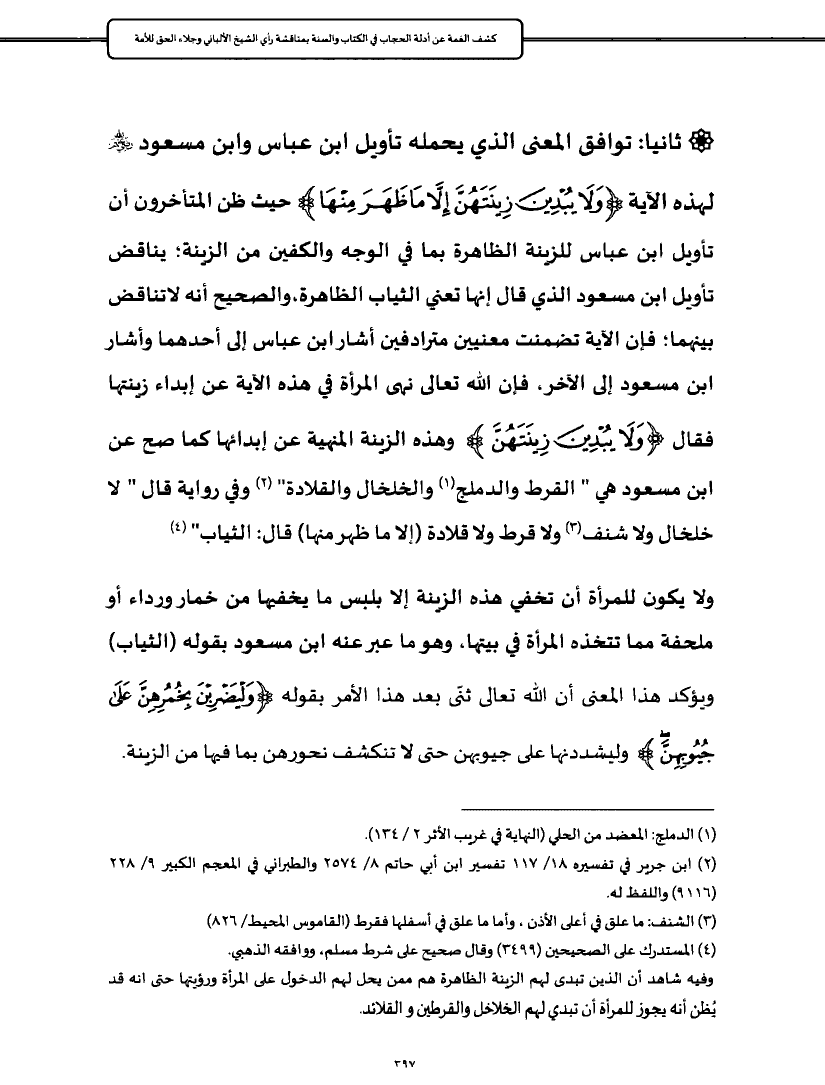 كشف الغمة عن أدلة الحجاب في الكتاب والسنة بمناقشة رأي الشيخ الألباني وجلاء الحق للأمة
۞ ثانيا: توافق المعنى الذي يحمله تأويل ابن عباس وابن مسعود
لهذه الآية ﴿وَلَا يُبْدِينَ زِينَتَهُنَّ إِلَّا مَا ظَهَرَ مِنْهَا﴾ حيث ظن المتأخرون أن
تأويل ابن عباس للزينة الظاهرة بما في الوجه والكفين من الزينة؛ يناقض
تأويل ابن مسعود الذي قال إنها تعني الثياب الظاهرة،والصحيح أنه لاتناقض
بينهما؛ فإن الآية تضمنت معنيين مترادفين أشار ابن عباس إلى أحدهما وأشار
ابن مسعود إلى الآخر، فإن الله تعالى نهى المرأة في هذه الآية عن إبداء زينتها
فقال ﴿وَلَا يُبْدِينَ زِينَتَهُنَّ﴾ وهذه الزينة المنهية عن إبدائها كما صح عن
ابن مسعود هي " القرط والدملج(١) والخلخال والقلادة" (٢) وفي رواية قال " لا
خلخال ولا شنف(٣) ولا قرط ولا قلادة (إلا ما ظهر منها) قال: الثياب" (٤)
ولا يكون للمرأة أن تخفي هذه الزينة إلا بلبس ما يخفيها من خمار ورداء أو
ملحفة مما تتخذه المرأة في بيتها، وهو ما عبر عنه ابن مسعود بقوله (الثياب)
ويؤكد هذا المعنى أن الله تعالى ثنّى بعد هذا الأمر بقوله ﴿وَلْيَضْرِبْنَ بِخُمُرِهِنَّ عَلَىٰ
جُيُوبِهِنَّ ۖ﴾ وليشددنها على جيوبهن حتى لا تنكشف نحورهن بما فيها من الزينة.
(١) الدملج: المعضد من الحلي (النهاية في غريب الأثر ٢ / ١٣٤).
(٢) ابن جرير في تفسيره ١٨/ ١١٧ تفسير ابن أبي حاتم ٨/ ٢٥٧٤ والطبراني في المعجم الكبير ٩/ ٢٢٨
(٩١١٦) واللفظ له.
(٣) الشنف: ما علق في أعلى الأذن ، وأما ما علق في أسفلها فقرط (القاموس المحيط/ ٨٢٦)
(٤) المستدرك على الصحيحين (٣٤٩٩) وقال صحيح على شرط مسلم، ووافقه الذهبي.
وفيه شاهد أن الذين تبدى لهم الزينة الظاهرة هم ممن يحل لهم الدخول على المرأة ورؤيتها حتى انه قد
يُظن أنه يجوز للمرأة أن تبدي لهم الخلاخل والقرطين و القلائد.
٣٩٧